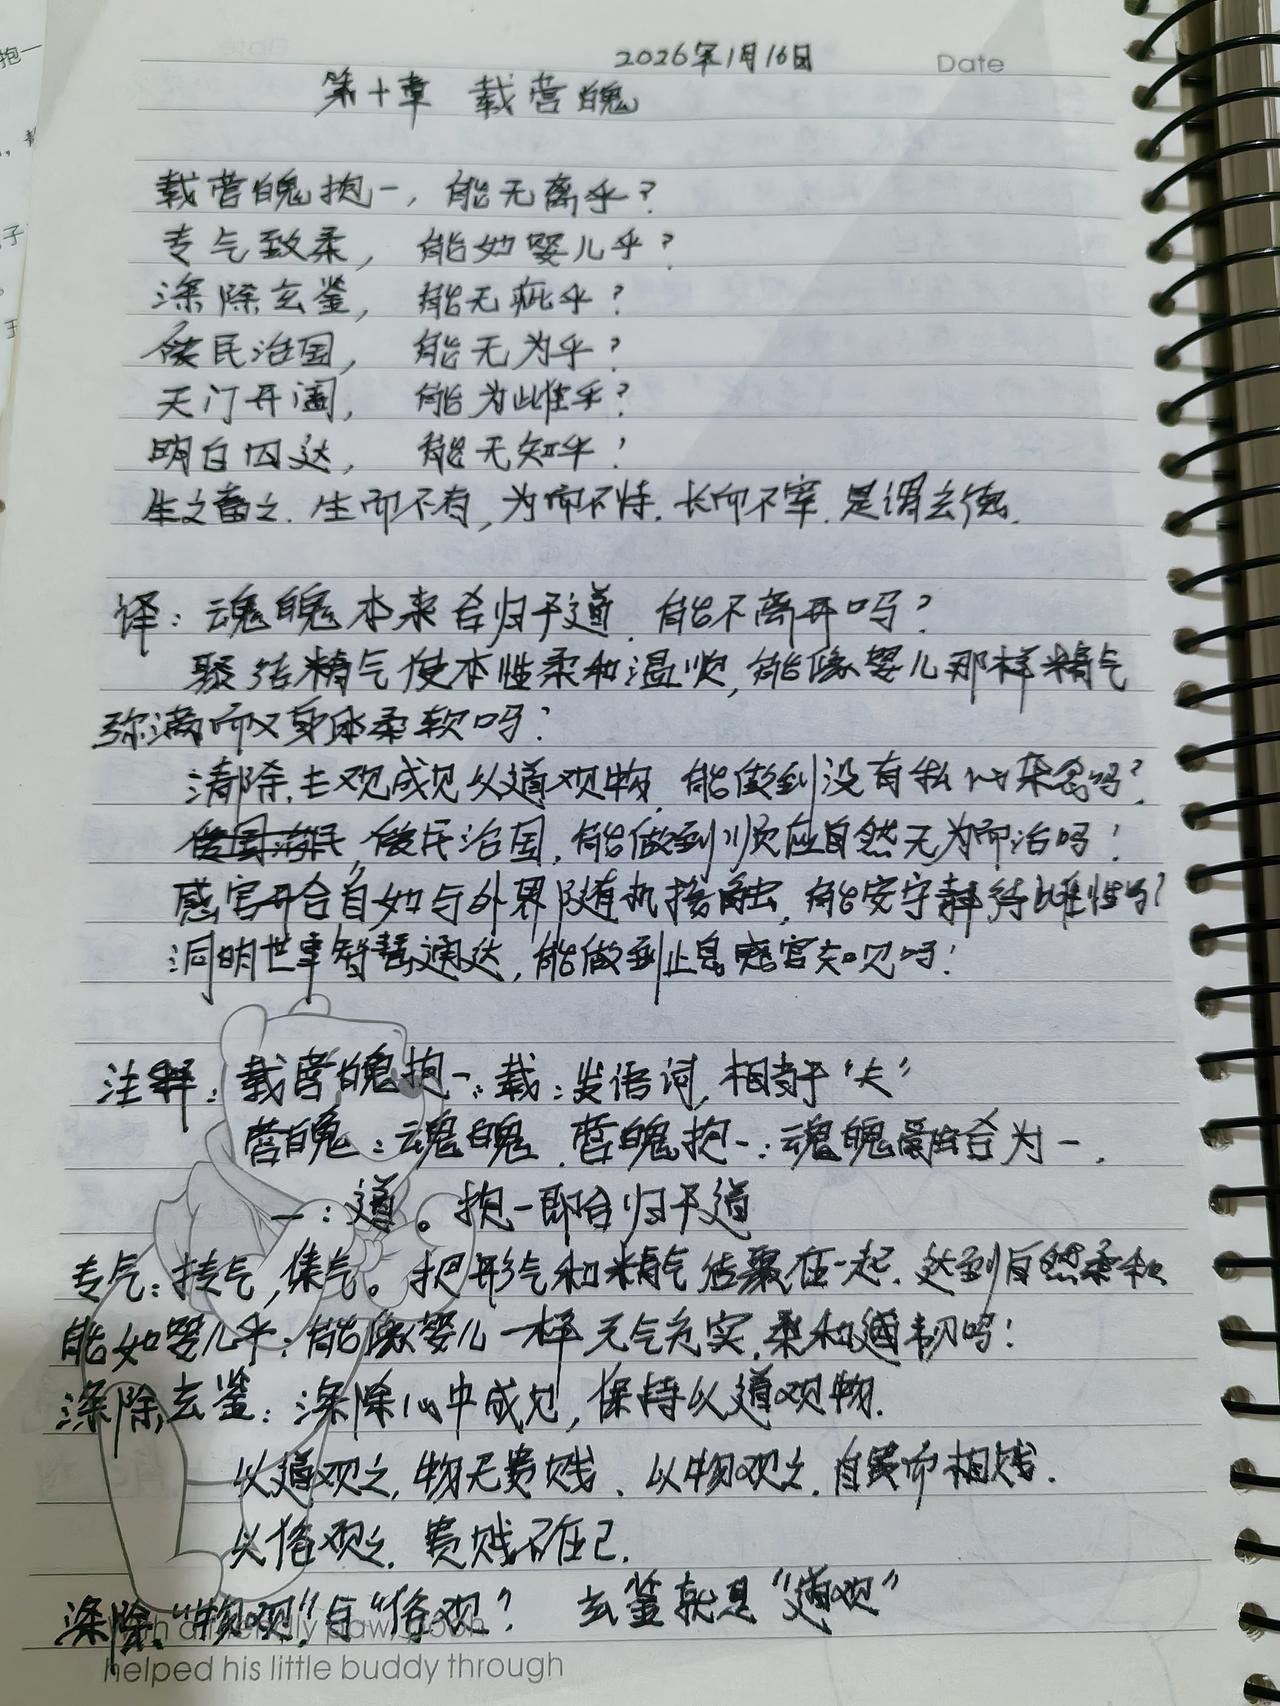 2026年1月16日 Date
第十章 载营魄
载营魄抱一，能无离乎？
专气致柔，能如婴儿乎？
涤除玄鉴，能无疵乎？
民治国，能无为乎？
天门开阖，能为雌乎？
明白四达，能无知乎？
生之畜之.生而不有,为而不恃.长而不宰.是谓玄德.
译：魂魄本来合归于道.能不离开吗？
聚结精气使本性柔和温顺,能像婴儿那样精气
弥满而又身体柔软吗？
清除主观成见以道观物,能做到没有私心杂念吗？
民治国,能做到顺应自然无为而治吗？
感官开合自如与外界随机接触,能安守静待雌性吗？
洞明世事智慧通达,能做到止息感官知见吗？
注释：载营魄抱一：载：发语词,相当于“夫”
营魄：魂魄.营魄抱一：魂魄合为一.
一：道。抱一即合归于道
专气：抟气,集气。把形气和精气结聚在一起.达到自然柔和
能如婴儿乎：能像婴儿一样元气充实,柔和通韧吗？
涤除玄鉴：涤除心中成见,保持以道观物.
以道观之,物无贵贱、以物观之.自贵而相贱.
以俗观之.贵贱不在己.
涤除“物观”与“俗观”？ 玄鉴就是“道观”
helped his little buddy through